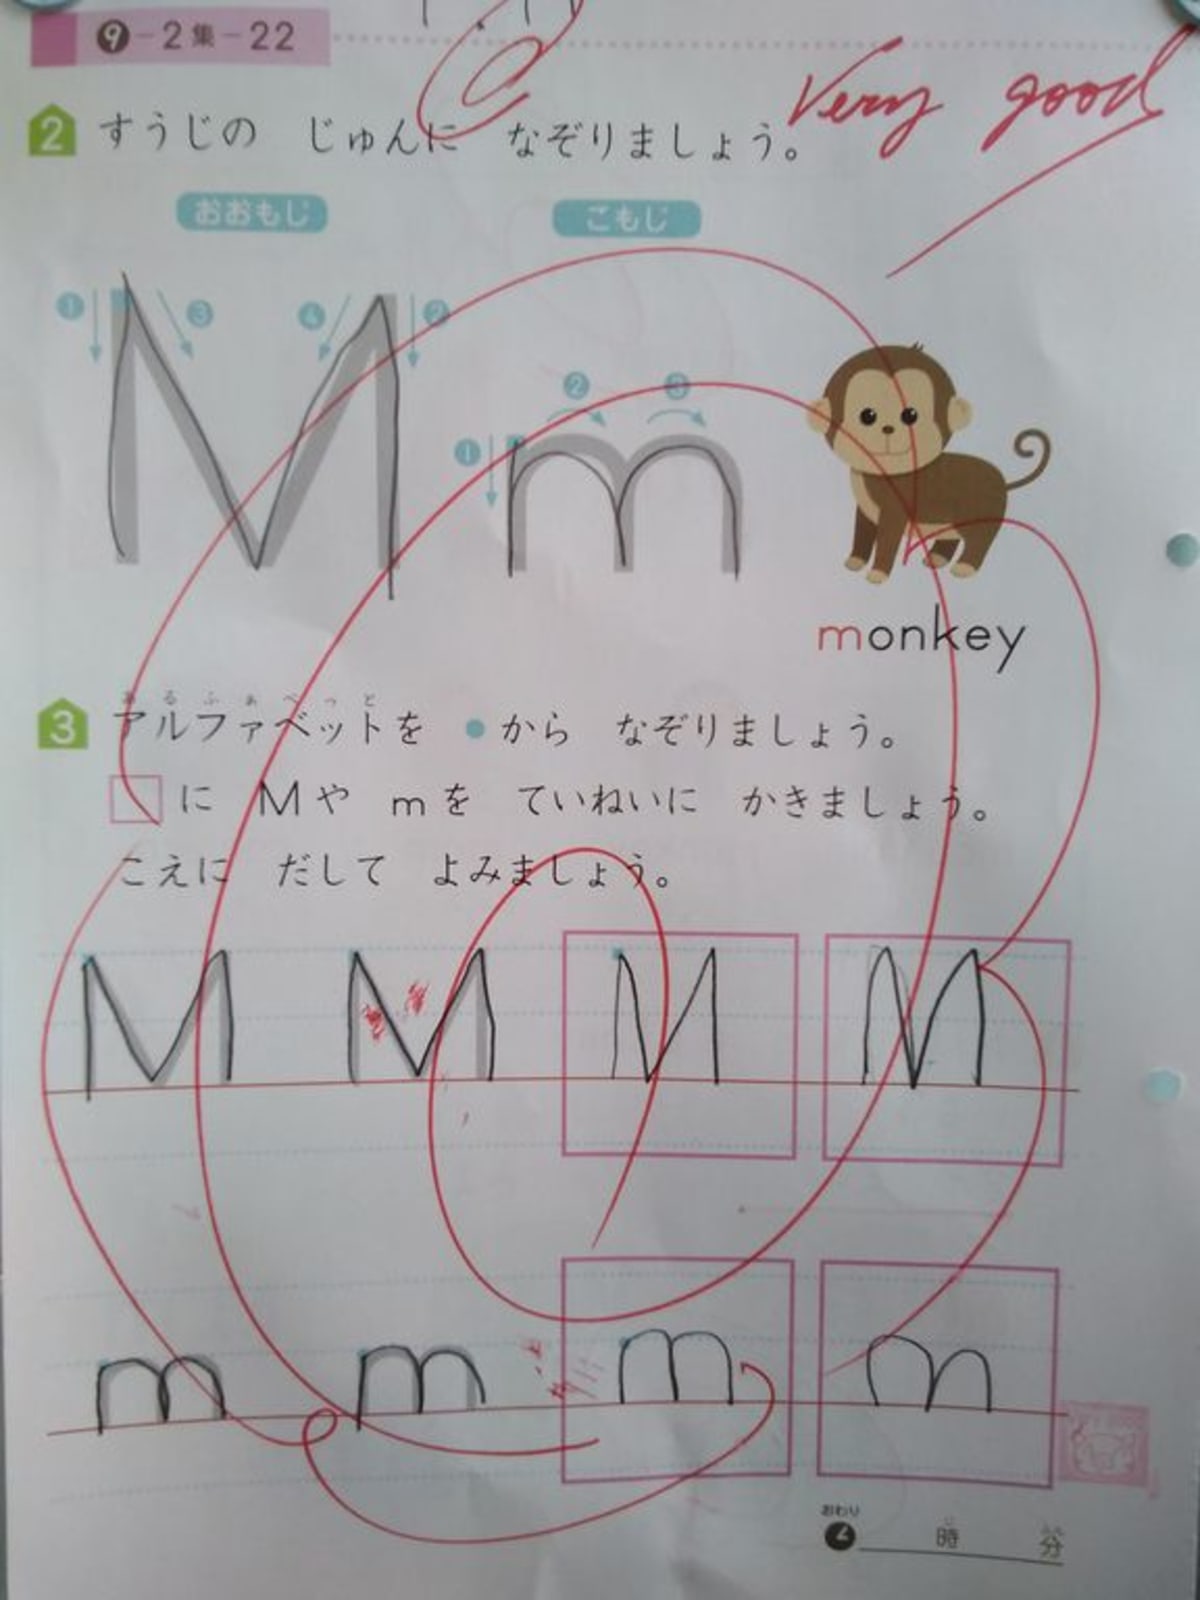 9-2集-22
Very good
2 すうじの じゅんに なぞりましょう。
おおもじ こもじ
1 3 4 2
M
1 2 3
m
monkey
あるふぁべっと
3 アルファベットを ●から なぞりましょう。
□に Mや mを ていねいに かきましょう。
こえに だして よみましょう。
M M M M
m m m m
おわり
じ ふん
時 分